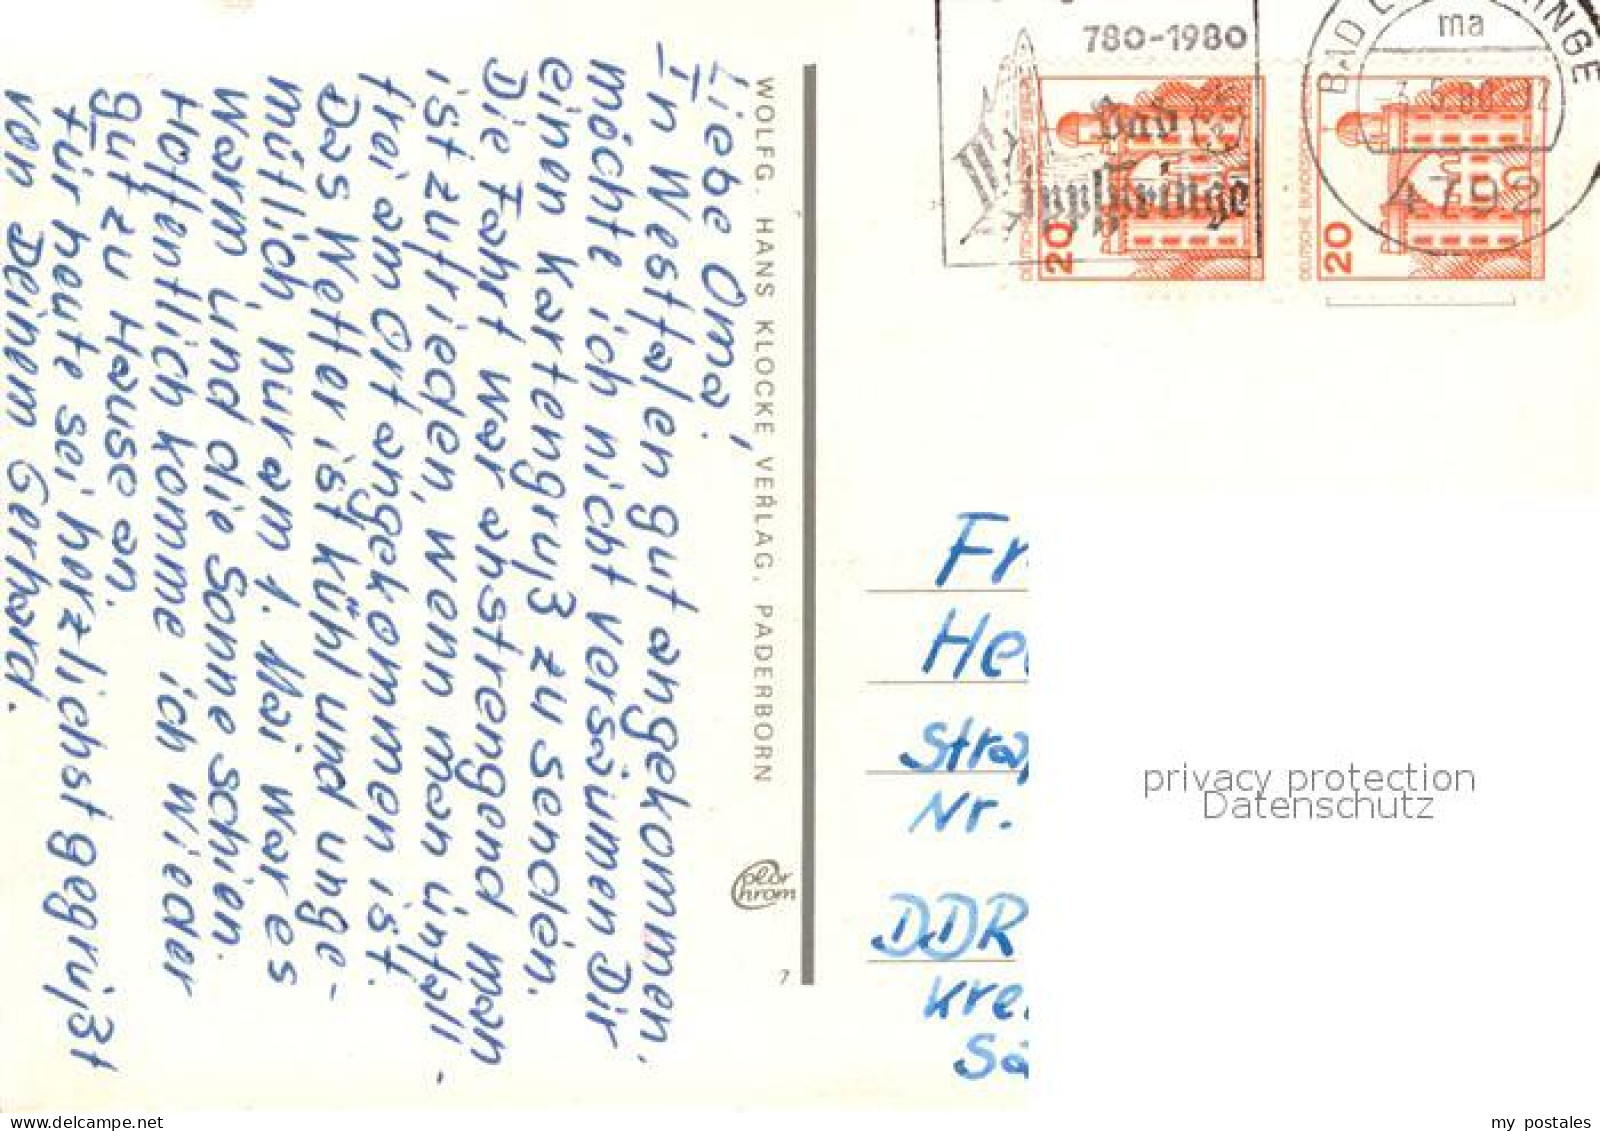 Liebe Oma!
In Westfalen gut angekommen,
möchte ich nicht versäumen Dir
einen Kartengruß zu senden.
Die Fahrt war anstrengend man
ist zufrieden, wenn man unfall-
frei am Ort angekommen ist.
Das Wetter ist kühl und unge-
mütlich, nur am 1. Mai war es
warm und die Sonne schien.
Hoffentlich komme ich wieder
gut zu Hause an.
Für heute sei herzlichst gegrüßt
von Deinem Gerhard.
WOLFG. HANS KLOCKE VERLAG, PADERBORN
Color
Chrom
7
780-1980
Bad
Lippspringe
ma
4792
DEUTSCHE BUNDESPOST
20
DEUTSCHE BUNDESPOST
20
Fr
He
Straß
Nr.
DDR
Kre
Sä
privacy protection
Datenschutz
delcampe.net
my_postales